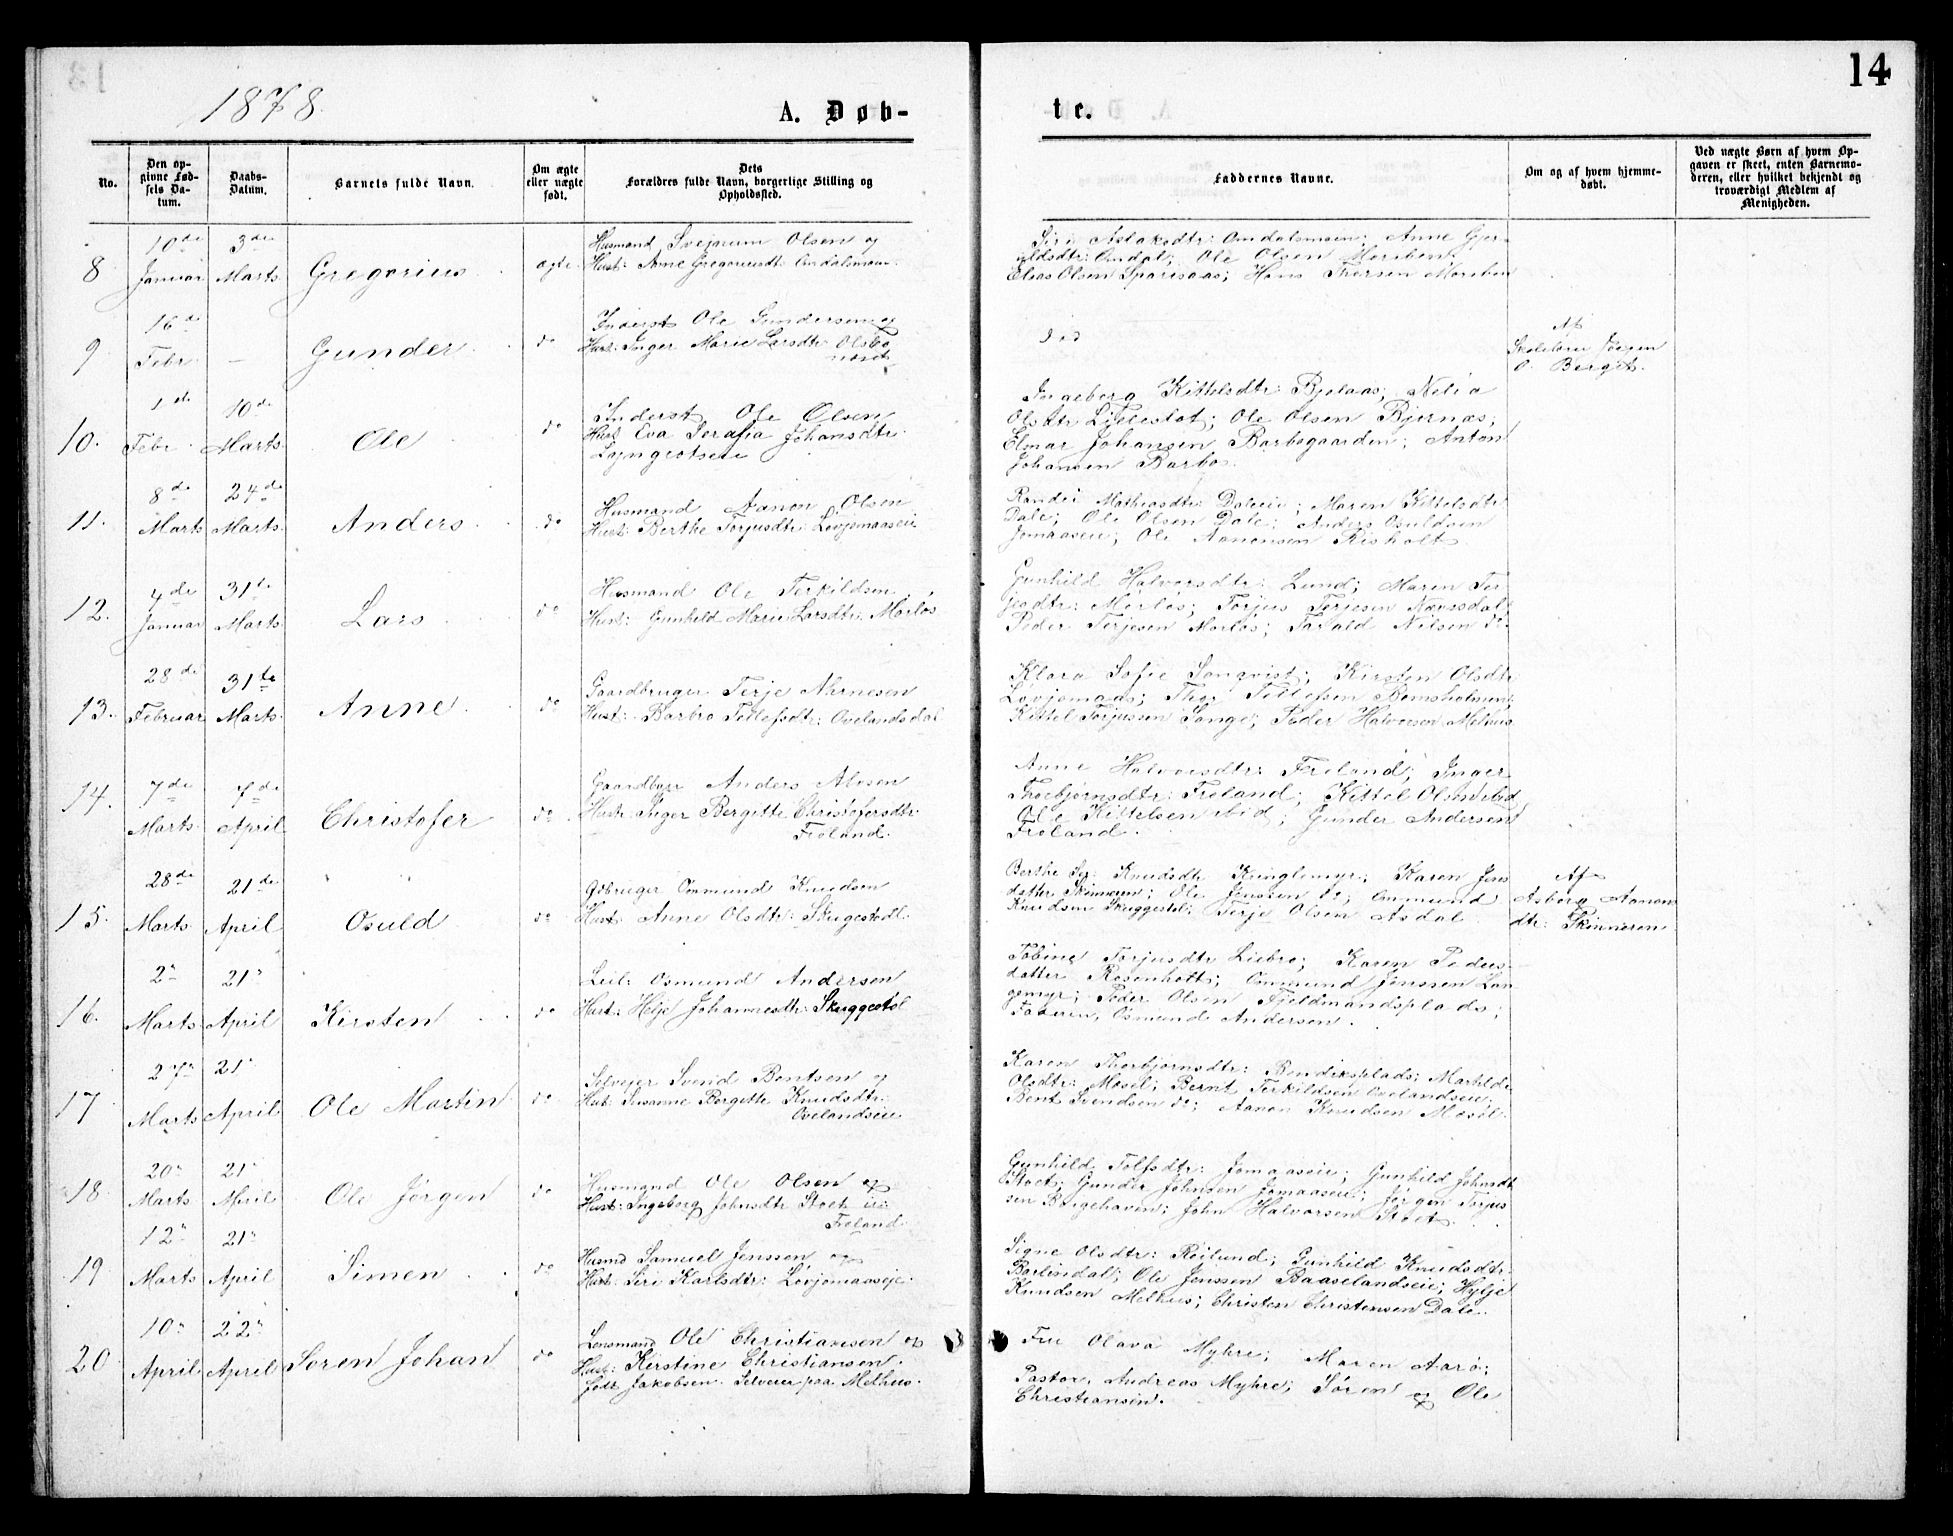 14
1878.
A. Døb-
te.
No.
Den op-
givne Fød-
sels Da-
tum.
Daabs-
Datum.
Barnets fulde Navn.
Om ægte
eller uægte
født.
Dets
Forældres fulde Navn, borgerlige Stilling og
Opholdssted.
Faddernes Navne.
Om og af hvem hjemme-
døbt.
Ved uægte Børn af hvem Op-
gaven er skeet, enten Barnemo-
deren, eller hvilket bekjendt og
troværdigt Medlem af
Menigheden.
8
10de
Januar
3die
Marts
Gregorius
ægte
Husmand Svejnum Olsen og
Hust: Anne Gregoriusdt: Omdalsmoen.
Siri Aslaksdtr: Omdalsmoen; Anne Gjer-
uldsdtr: Omdal; Ole Olsen Moreben;
Elias Olsen Sparsaas; Hans Thorsen Moreben
9
16de
Febr
–
Gunder
do
Inderst Ole Gundersen og
Hust: Inger Marie Larsdtr:
død
Af
Skolelærer Jørgen
O. Berget.
10.
1ste
Febr.
10de
Marts
Ole
do
Inderst Ole Olsen
Hust Eva Serafia Johansdtr.
Lyngrotseie
Ingeborg Kittelsdtr: Bjelaas; Nelia
Olsdtr Lillesløt; Ole Olsen Bjernæs;
Elmar Johansen Barbogaarden; Anton
Johansen Barbo.
11.
8de
Marts
24de
Marts
Anders
do
Husmand Aanon Olsen
Hust: Berthe Torjusdtr: Lovjomaaseie
Randi Mathiasdtr: Daleeie; Maren Kittelsdtr
Dale; Ole Olsen Dale; Anders Osuldsen
Jomaaseie; Ole Aanonsen Risholt
12.
4de
Januar
31te
Marts
Lars
do
Husmand Ole Terkildsen,
Hust: Gunhild Marie Larsdtr: Mørløs
Gunhild Halvorsdtr: Lund; Maren Ter-
jesdtr: Mørløs; Torjus Terjesen Nævesdal
Peder Terjesen Mørløs; Tarald Nilsen do.
13.
28de
Februar
31te
Marts
Anne
do
Gaardbruger Terje Nirnesen
Hust: Barbro Tellefsdtr: Ovelandsdal
Klara Sofie Sonqvist; Kirsten Olsdtr
Lovjomaas; Thor Tellefsen Bomsholmen;
Kittel Torjussen Songe; Peder Halvorsen Melhus
14.
7de
Marts
7de
April
Christofer
do
Gaardbger Anders Alvsen
Hust: Inger Bergitte Christofersdtr:
Froland.
Anne Halvorsdtr: Froland; Inger
Thorbjørnsdtr: Froland; Kittel Olsen ibid
Ole Kittelsen ibid; Gunder Andersen
Froland.
15.
28de
Marts
21de
April
Osuld
do
Gdbruger Osmund Knudsen
Hust: Anne Olsdtr: Skugestøl.
Berthe Knudsdt Kringlemyr; Karen Jens
datter Skinneren; Ole Jenssen do; Osmund
Knudsen Skuggestøl; Terje Olsen Asdal
Af
Asborg Aanon
dtr: Skinneren
16.
2n
Marts
21n
April
Kirsten
do
Leil: Osmund Andersen
Hust: Helje Johannesdtr: Skuggestøl
Tobine Torjusdtr Liebro; Karen Peders-
datter Rosenholt; Osmund Jenssen Lan
gemyr; Peder Olsen Fjeldmandsplads;
Faderen, Osmund Andersen.
17
27n
Marts
21n
April
Ole Martin
do
Selvejer Svend Bentsen og
Hust: Susanne Bergitte Knudsdtr:
Ovelandseie
Karen Thorbjørnsdtr: Bendiksplads; Mathilde
Olsdtr: Mesel; Bernt Terkildsen Ovelandseie.
Bent Svendsen do; Aanon Knudsen Mesel.
18.
20n
Marts
21n
April
Ole Jørgen
do
Husmand Ole Olsen og
Hust: Ingeborg Johnsdtr Støet
Froland
Gunhild Tolfsdtr: Jomaaseie; Gunhild Johnsdt
Støet; Gunder Johnsen Jomaaseie; Jørgen Torjus
sen Bøigehaven; John Halvorsen Støet.
19
12n
Marts
21n
April
Simen
do
Husmd Samuel Jenssen og
Hust: Siri Karlsdtr: Lovjomaaseje.
Signe Olsdtr: Reilund; Gunhild Knudsdtr:
Barlindal; Ole Jenssen Baaselandseie; Hylje
Knudsen Melhus; Christen Christensen Dale.
20
10n
April
22n
April
Søren Johan
do
Lensmand Ole Christiansen og
Hust: Kirstine Christiansen.
født Jakobsen. Selveier paa Melhus.
Fru Olava Myhre; Maren Aarø;
Pastor Andreas Myhre; Søren og Ole
Christiansen.